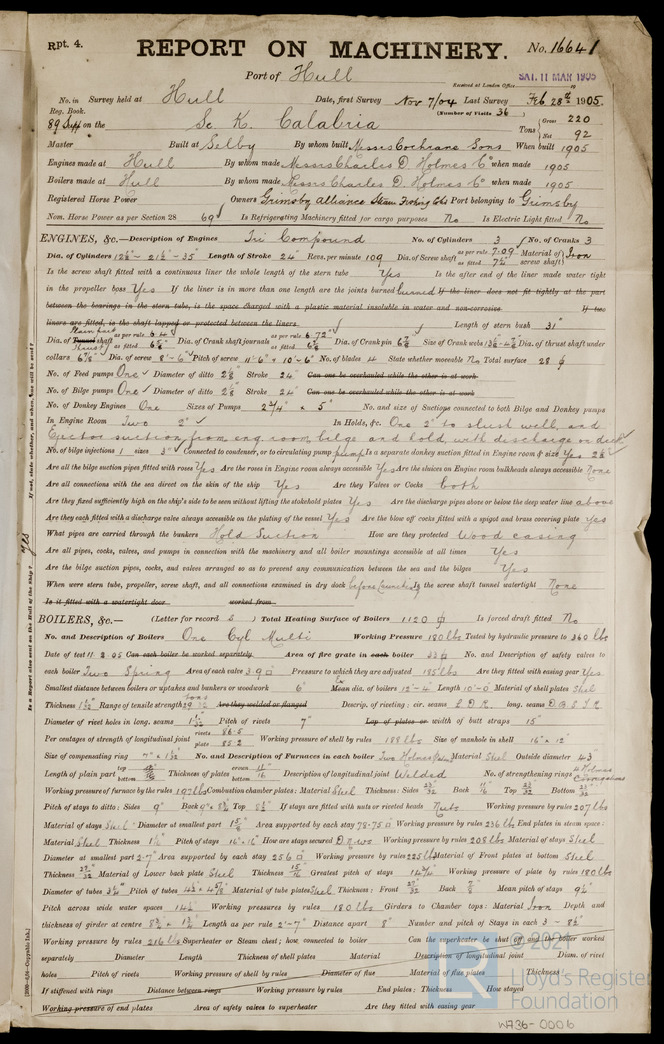 Rpt. 4.
REPORT ON MACHINERY.
No. 16641
Port of Hull
Received at London Office SAT. 11 MAR 1905
No. in Survey held at Hull Date, first Survey Nov 7/04 Last Survey Feb 28th 1905.
Reg. Book. (Number of Visits 36)
89 Supp on the Sc K. Calabria Tons { Gross 220
Net 92
Master Built at Selby By whom built Messrs Cochrane Sons When built 1905
Engines made at Hull By whom made Messrs Charles D. Holmes Co when made 1905
Boilers made at Hull By whom made Messrs Charles D. Holmes Co when made 1905
Registered Horse Power Owners Grimsby Alliance Steam Fishing Co Port belonging to Grimsby
Nom. Horse Power as per Section 28 69 Is Refrigerating Machinery fitted for cargo purposes No Is Electric Light fitted No
ENGINES, &c.—Description of Engines Tri Compound No. of Cylinders 3 No. of Cranks 3
Dia. of Cylinders 12½ - 21½ - 35" Length of Stroke 24" Revs. per minute 109 Dia. of Screw shaft as per rule 7.09 as fitted Material of screw shaft Iron
Is the screw shaft fitted with a continuous liner the whole length of the stern tube Yes Is the after end of the liner made water tight
in the propeller boss Yes If the liner is in more than one length are the joints burned burned If the liner does not fit tightly at the part
between the bearings in the stern tube, is the space charged with a plastic material insoluble in water and non-corrosive If two
liners are fitted, is the shaft lapped or protected between the liners Length of stern bush 31"
Dia. of Tunnel shaft as per rule 6.4 as fitted Dia. of Crank shaft journals as per rule 6.72" as fitted Dia. of Crank pin Size of Crank webs Dia. of thrust shaft under
collars 6⅞" Dia. of screw 8'-6" Pitch of screw 11'-6" × 10'-6" No. of blades 4 State whether moveable No Total surface 28
No. of Feed pumps One Diameter of ditto Stroke 24" Can one be overhauled while the other is at work
No. of Bilge pumps One Diameter of ditto Stroke 24" Can one be overhauled while the other is at work
No. of Donkey Engines One Sizes of Pumps 2¾" × 5" No. and size of Suctions connected to both Bilge and Donkey pumps
In Engine Room Two 2" In Holds, &c. One 2" to slush well, and
Ejector suction from eng. room, bilge and hold, with discharge on deck
No. of bilge injections 1 sizes 3" Connected to condenser, or to circulating pump pump Is a separate donkey suction fitted in Engine room & size Yes
Are all the bilge suction pipes fitted with roses Yes Are the roses in Engine room always accessible Yes Are the sluices on Engine room bulkheads always accessible None
Are all connections with the sea direct on the skin of the ship Yes Are they Valves or Cocks both
Are they fixed sufficiently high on the ship's side to be seen without lifting the stokehold plates Yes Are the discharge pipes above or below the deep water line above
Are they each fitted with a discharge valve always accessible on the plating of the vessel Yes Are the blow off cocks fitted with a spigot and brass covering plate Yes
What pipes are carried through the bunkers Hold Suction How are they protected Wood casing
Are all pipes, cocks, valves, and pumps in connection with the machinery and all boiler mountings accessible at all times Yes
Are the bilge suction pipes, cocks, and valves arranged so as to prevent any communication between the sea and the bilges Yes
When were stern tube, propeller, screw shaft, and all connections examined in dry dock before launching Is the screw shaft tunnel watertight None
Is it fitted with a watertight door worked from
BOILERS, &c.— (Letter for record S) Total Heating Surface of Boilers 1120 Is forced draft fitted No
No. and Description of Boilers One Cyl Multi Working Pressure 180 lbs Tested by hydraulic pressure to 360 lbs
Date of test 11.2.05 Can each boiler be worked separately Area of fire grate in each boiler No. and Description of safety valves to
each boiler Two Spring Area of each valve 3.9 Pressure to which they are adjusted 185 lbs Are they fitted with easing gear Yes
Smallest distance between boilers or uptakes and bunkers or woodwork 6" Mean dia. of boilers 12'-4" Length 10'-0" Material of shell plates Steel
Thickness Range of tensile strength tons Are they welded or flanged Descrip. of riveting: cir. seams L.D.R. long. seams D.B.S.T.R.
Diameter of rivet holes in long. seams Pitch of rivets 7" Lap of plates or width of butt straps 15"
Per centages of strength of longitudinal joint rivets 86.5 plate 85.2 Working pressure of shell by rules 188 lbs Size of manhole in shell 16" × 12"
Size of compensating ring No. and Description of Furnaces in each boiler Two Holmes Material Steel Outside diameter 43"
Length of plain part top bottom Thickness of plates crown bottom Description of longitudinal joint Welded No. of strengthening rings 4 Holmes Corrugations
Working pressure of furnace by the rules 197 lbs Combustion chamber plates: Material Steel Thickness: Sides Back Top Bottom
Pitch of stays to ditto: Sides 9" Back Top If stays are fitted with nuts or riveted heads Nuts Working pressure by rules 207 lbs
Material of stays Steel Diameter at smallest part Area supported by each stay 78.75 Working pressure by rules 236 lbs End plates in steam space:
Material Steel Thickness Pitch of stays 16" × 16" How are stays secured D.N.W.S Working pressure by rules 208 lbs Material of stays Steel
Diameter at smallest part 2.7" Area supported by each stay 256 Working pressure by rules 225 lbs Material of Front plates at bottom Steel
Thickness Material of Lower back plate Steel Thickness Greatest pitch of stays Working pressure of plate by rules 180 lbs
Diameter of tubes Pitch of tubes Material of tube plates Steel Thickness: Front Back Mean pitch of stays
Pitch across wide water spaces 14½" Working pressures by rules 180 lbs Girders to Chamber tops: Material Iron Depth and
thickness of girder at centre Length as per rule 2'-7" Distance apart 8" Number and pitch of Stays in each 3 - 8½"
Working pressure by rules 216 lbs Superheater or Steam chest; how connected to boiler Can the superheater be shut off and the boiler worked
separately Diameter Length Thickness of shell plates Material Description of longitudinal joint Diam. of rivet
holes Pitch of rivets Working pressure of shell by rules Diameter of flue Material of flue plates Thickness
If stiffened with rings Distance between rings Working pressure by rules End plates: Thickness How stayed
Working pressure of end plates Area of safety valves to superheater Are they fitted with easing gear
If not, state whether, and when, one will be sent?
Is a Report also sent on the Hull of the Ship? Yes
© 2021
Lloyd's Register
Foundation
W736-0006